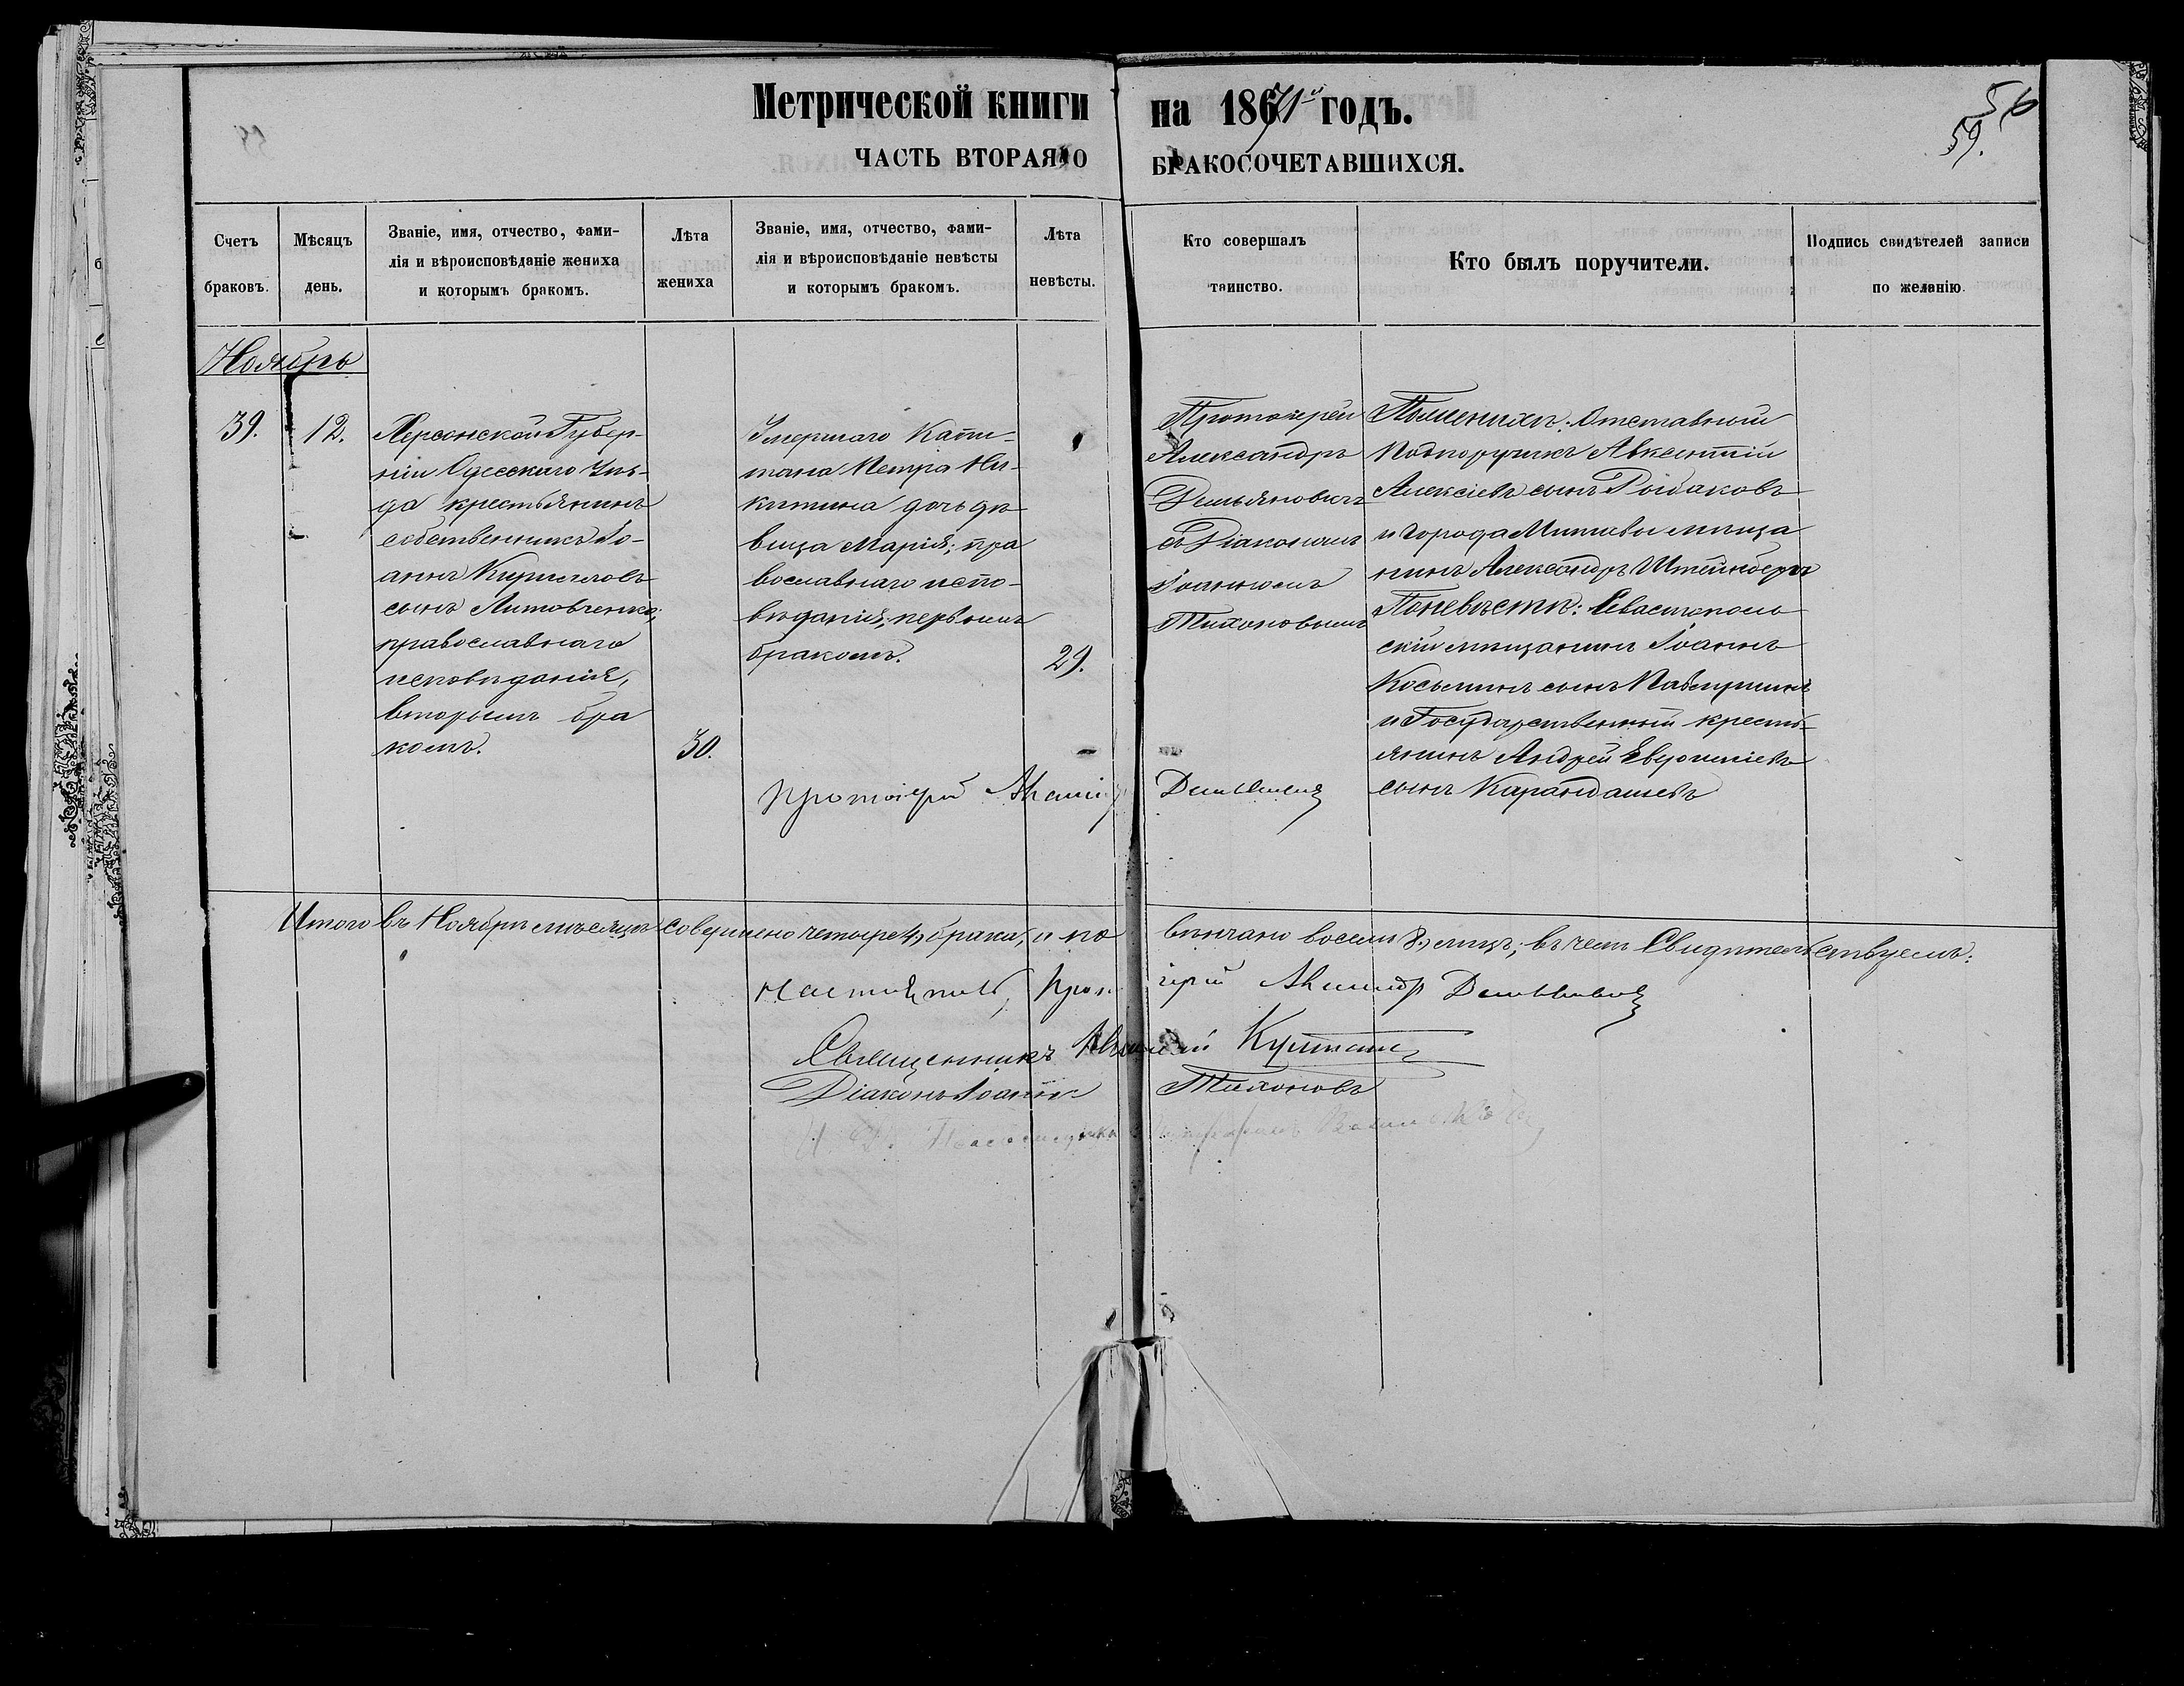 Метрической книги на 1871й годъ.
56
59.
ЧАСТЬ ВТОРАЯ О БРАКОСОЧЕТАВШИХСЯ.
Счетъ
браковъ.
Мѣсяцъ
день.
Званіе, имя, отчество, фами-
лія и вѣроисповѣданіе жениха
и которымъ бракомъ.
Лѣта
жениха
Званіе, имя, отчество, фами-
лія и вѣроисповѣданіе невѣсты
и которымъ бракомъ.
Лѣта
невѣсты.
Кто совершалъ
таинство.
Кто былъ поручители.
Подпись свидѣтелей записи
по желанію.
Ноябрь
39.
12.
Херсонской Губер-
ніи Одесскаго Уѣз-
да крестьянинъ
собственникъ Іо-
аннъ Кирилловъ
сынъ Литовченко,
православнаго
исповѣданія,
вторымъ бра
комъ.
30.
Умершаго Капи-
тана Петра Ни-
китина дочь дѣ
вица Марія, пра
вославнаго испо-
вѣданія, первымъ
бракомъ.
29.
Протоіерей
Александръ
Демьяновичъ
съ Діакономъ
Іоанномъ
Тихоновымъ
По женихѣ: Отставной
Подпоручикъ Авксентій
Алексіевъ сынъ Рыбаковъ
и города Митавы мѣща
нинъ Александръ Штейнбергъ
По невѣстѣ: Севастополь
скій мѣщанинъ Іоаннъ
Косьминъ сынъ
и Государственный кресть-
янинъ Андрей
сынъ Карандашевъ
Протоіерей Демьяновичъ
Итого въ Ноябрѣ мѣсяцѣ совершено четыре 4, брака, и по вѣнчано восемь 8, лицъ; въ чемъ Свидѣтельствуемъ:
Настоятель, Протоіерей Александръ Демьяновичъ
Священникъ
Діаконъ Іоаннъ Тихоновъ